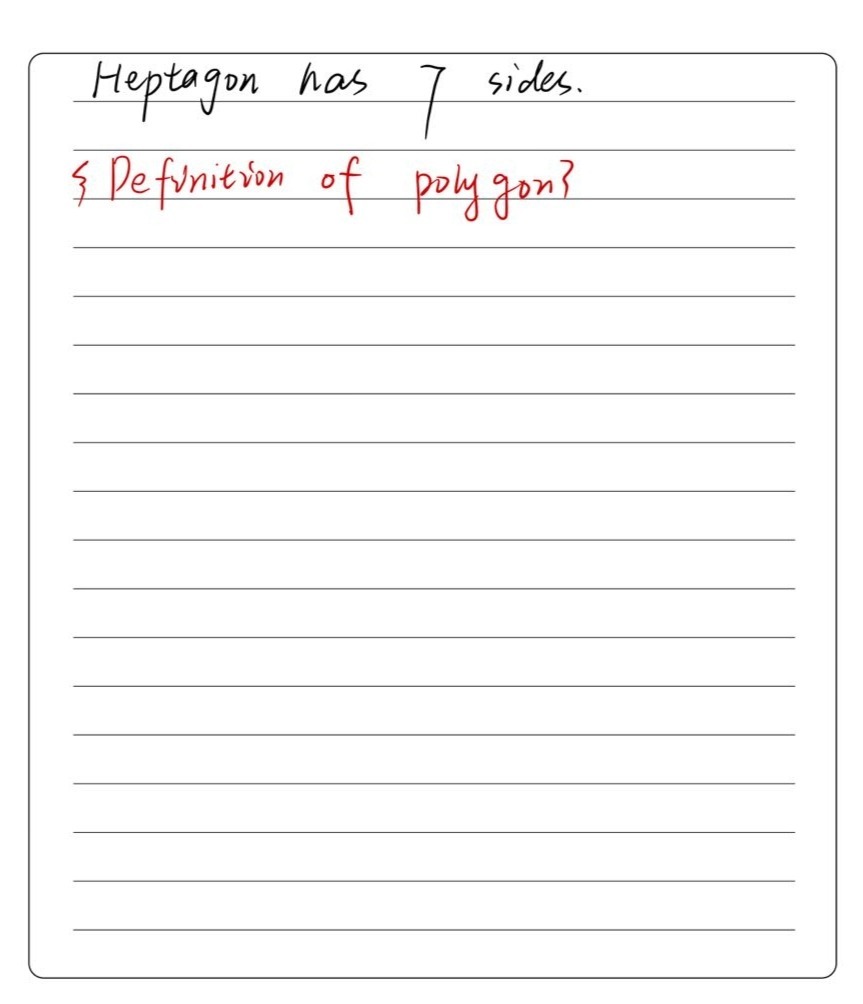 Heptagon has 7 sides.
{Definition of polygon}